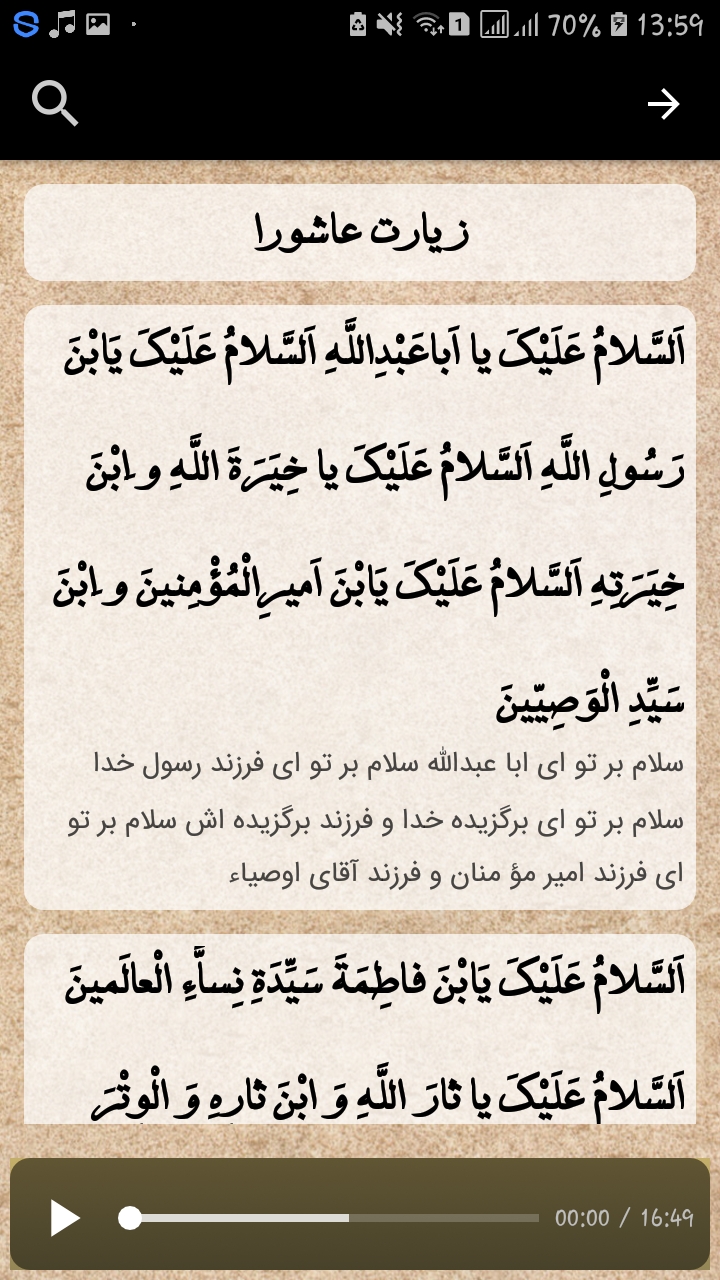 70% 13:59
زیارت عاشورا
اَلسَّلامُ عَلَیْکَ یا اَباعَبْدِاللَّهِ اَلسَّلامُ عَلَیْکَ یَابْنَ
رَسُولِ اللَّهِ اَلسَّلامُ عَلَیْکَ یا خِیَرَةَ اللَّهِ و ابْنَ
خِیَرَتِهِ اَلسَّلامُ عَلَیْکَ یَابْنَ اَمیرِالْمُؤْمِنینَ و ابْنَ
سَیِّدِ الْوَصِیّینَ
سلام بر تو ای ابا عبدالله سلام بر تو ای فرزند رسول خدا
سلام بر تو ای برگزیده خدا و فرزند برگزیده اش سلام بر تو
ای فرزند امیر مؤ منان و فرزند آقای اوصیاء
اَلسَّلامُ عَلَیْکَ یَابْنَ فاطِمَةَ سَیِّدَةِ نِساَّءِ الْعالَمینَ
اَلسَّلامُ عَلَیْکَ یا ثارَ اللَّهِ وَ ابْنَ ثارِهِ وَ الْوِتْرَ
00:00 / 16:49